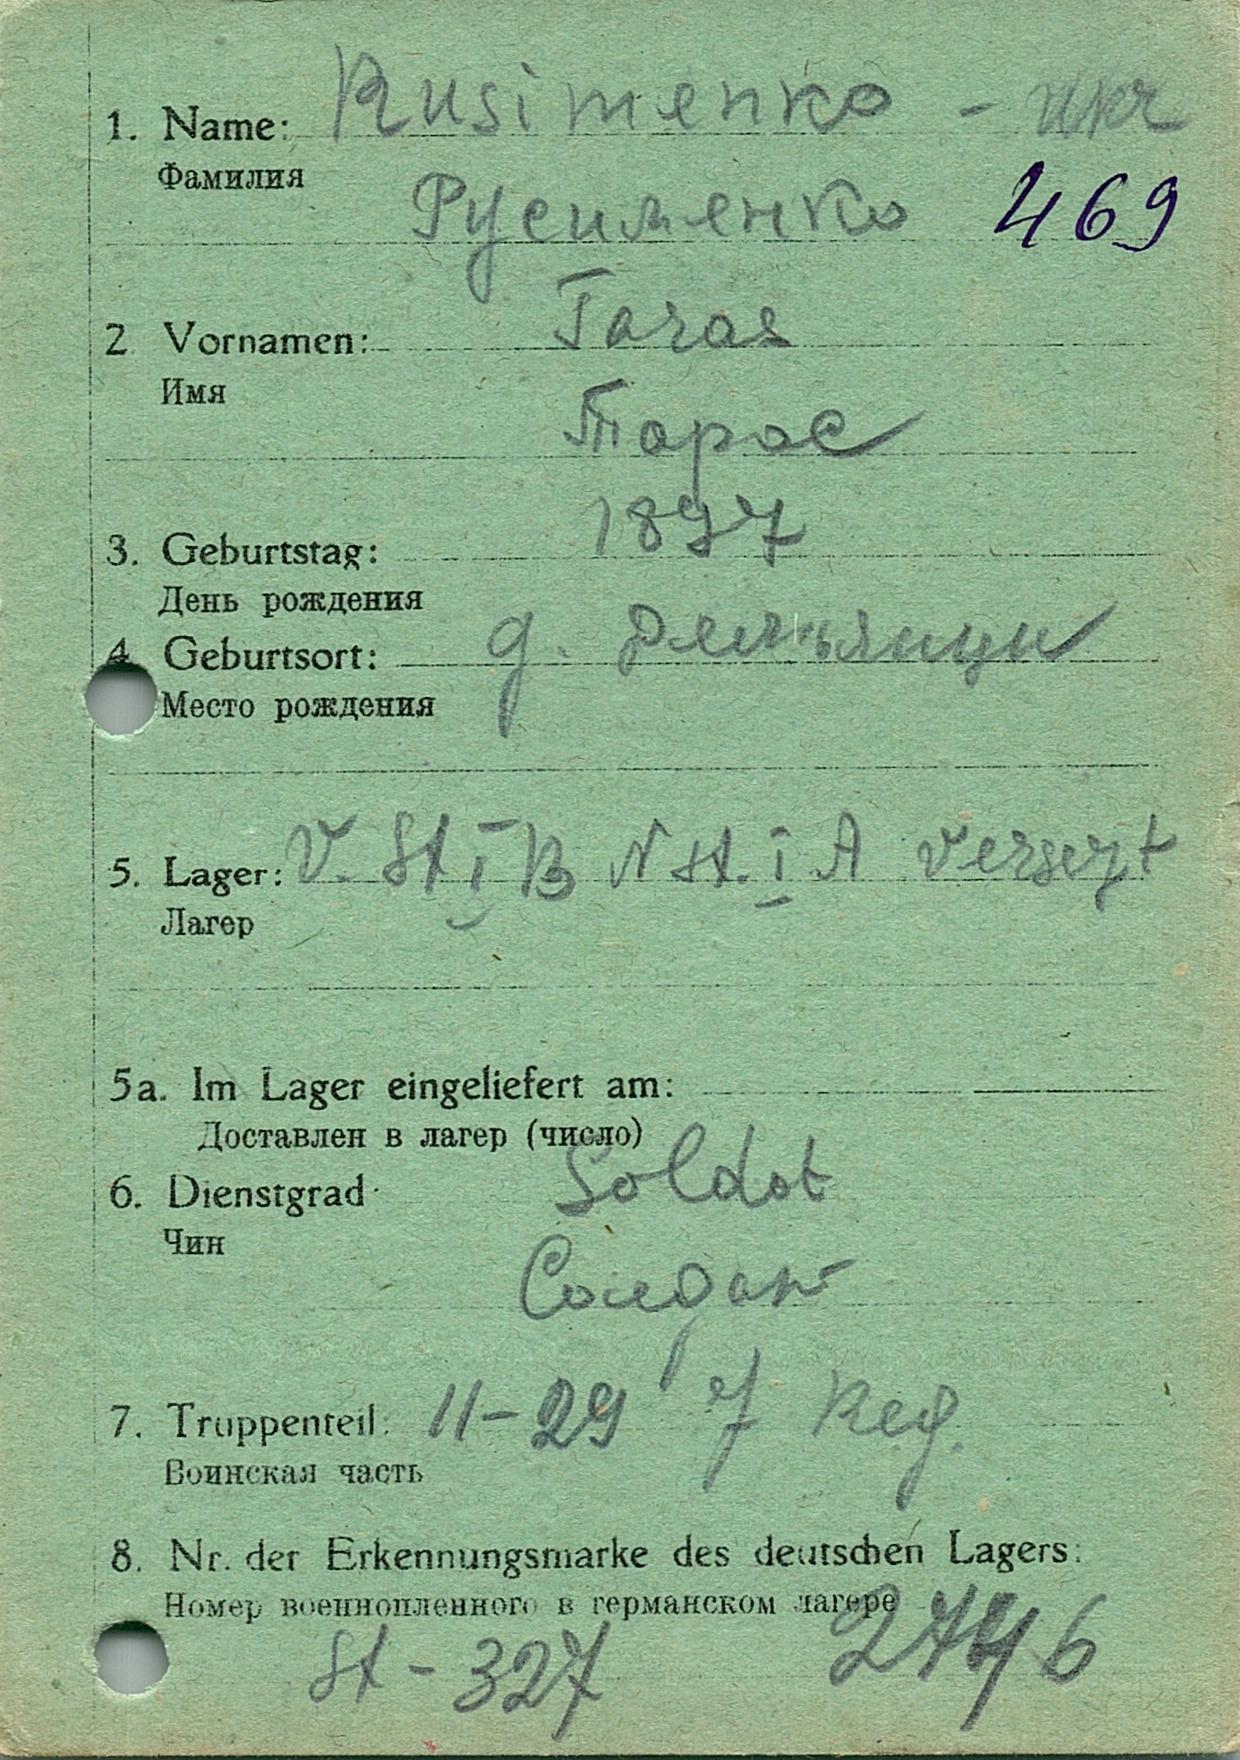 1. Name: Rusimenko - Ukr
Фамилия
Русименко 469
2. Vornamen: Taras
Имя
Тарас
3. Geburtstag: 1897
День рождения
4. Geburtsort: д.
Место рождения
5. Lager: V. St. I B N St. I A versezt
Лагер
5a. Im Lager eingeliefert am:
Доставлен в лагер (число)
6. Dienstgrad Soldat
Чин
Солдат
7. Truppenteil: 11-29 7 Reg.
Воинская часть
8. Nr. der Erkennungsmarke des deutschen Lagers:
Номер военнопленного в германском лагере
St - 327